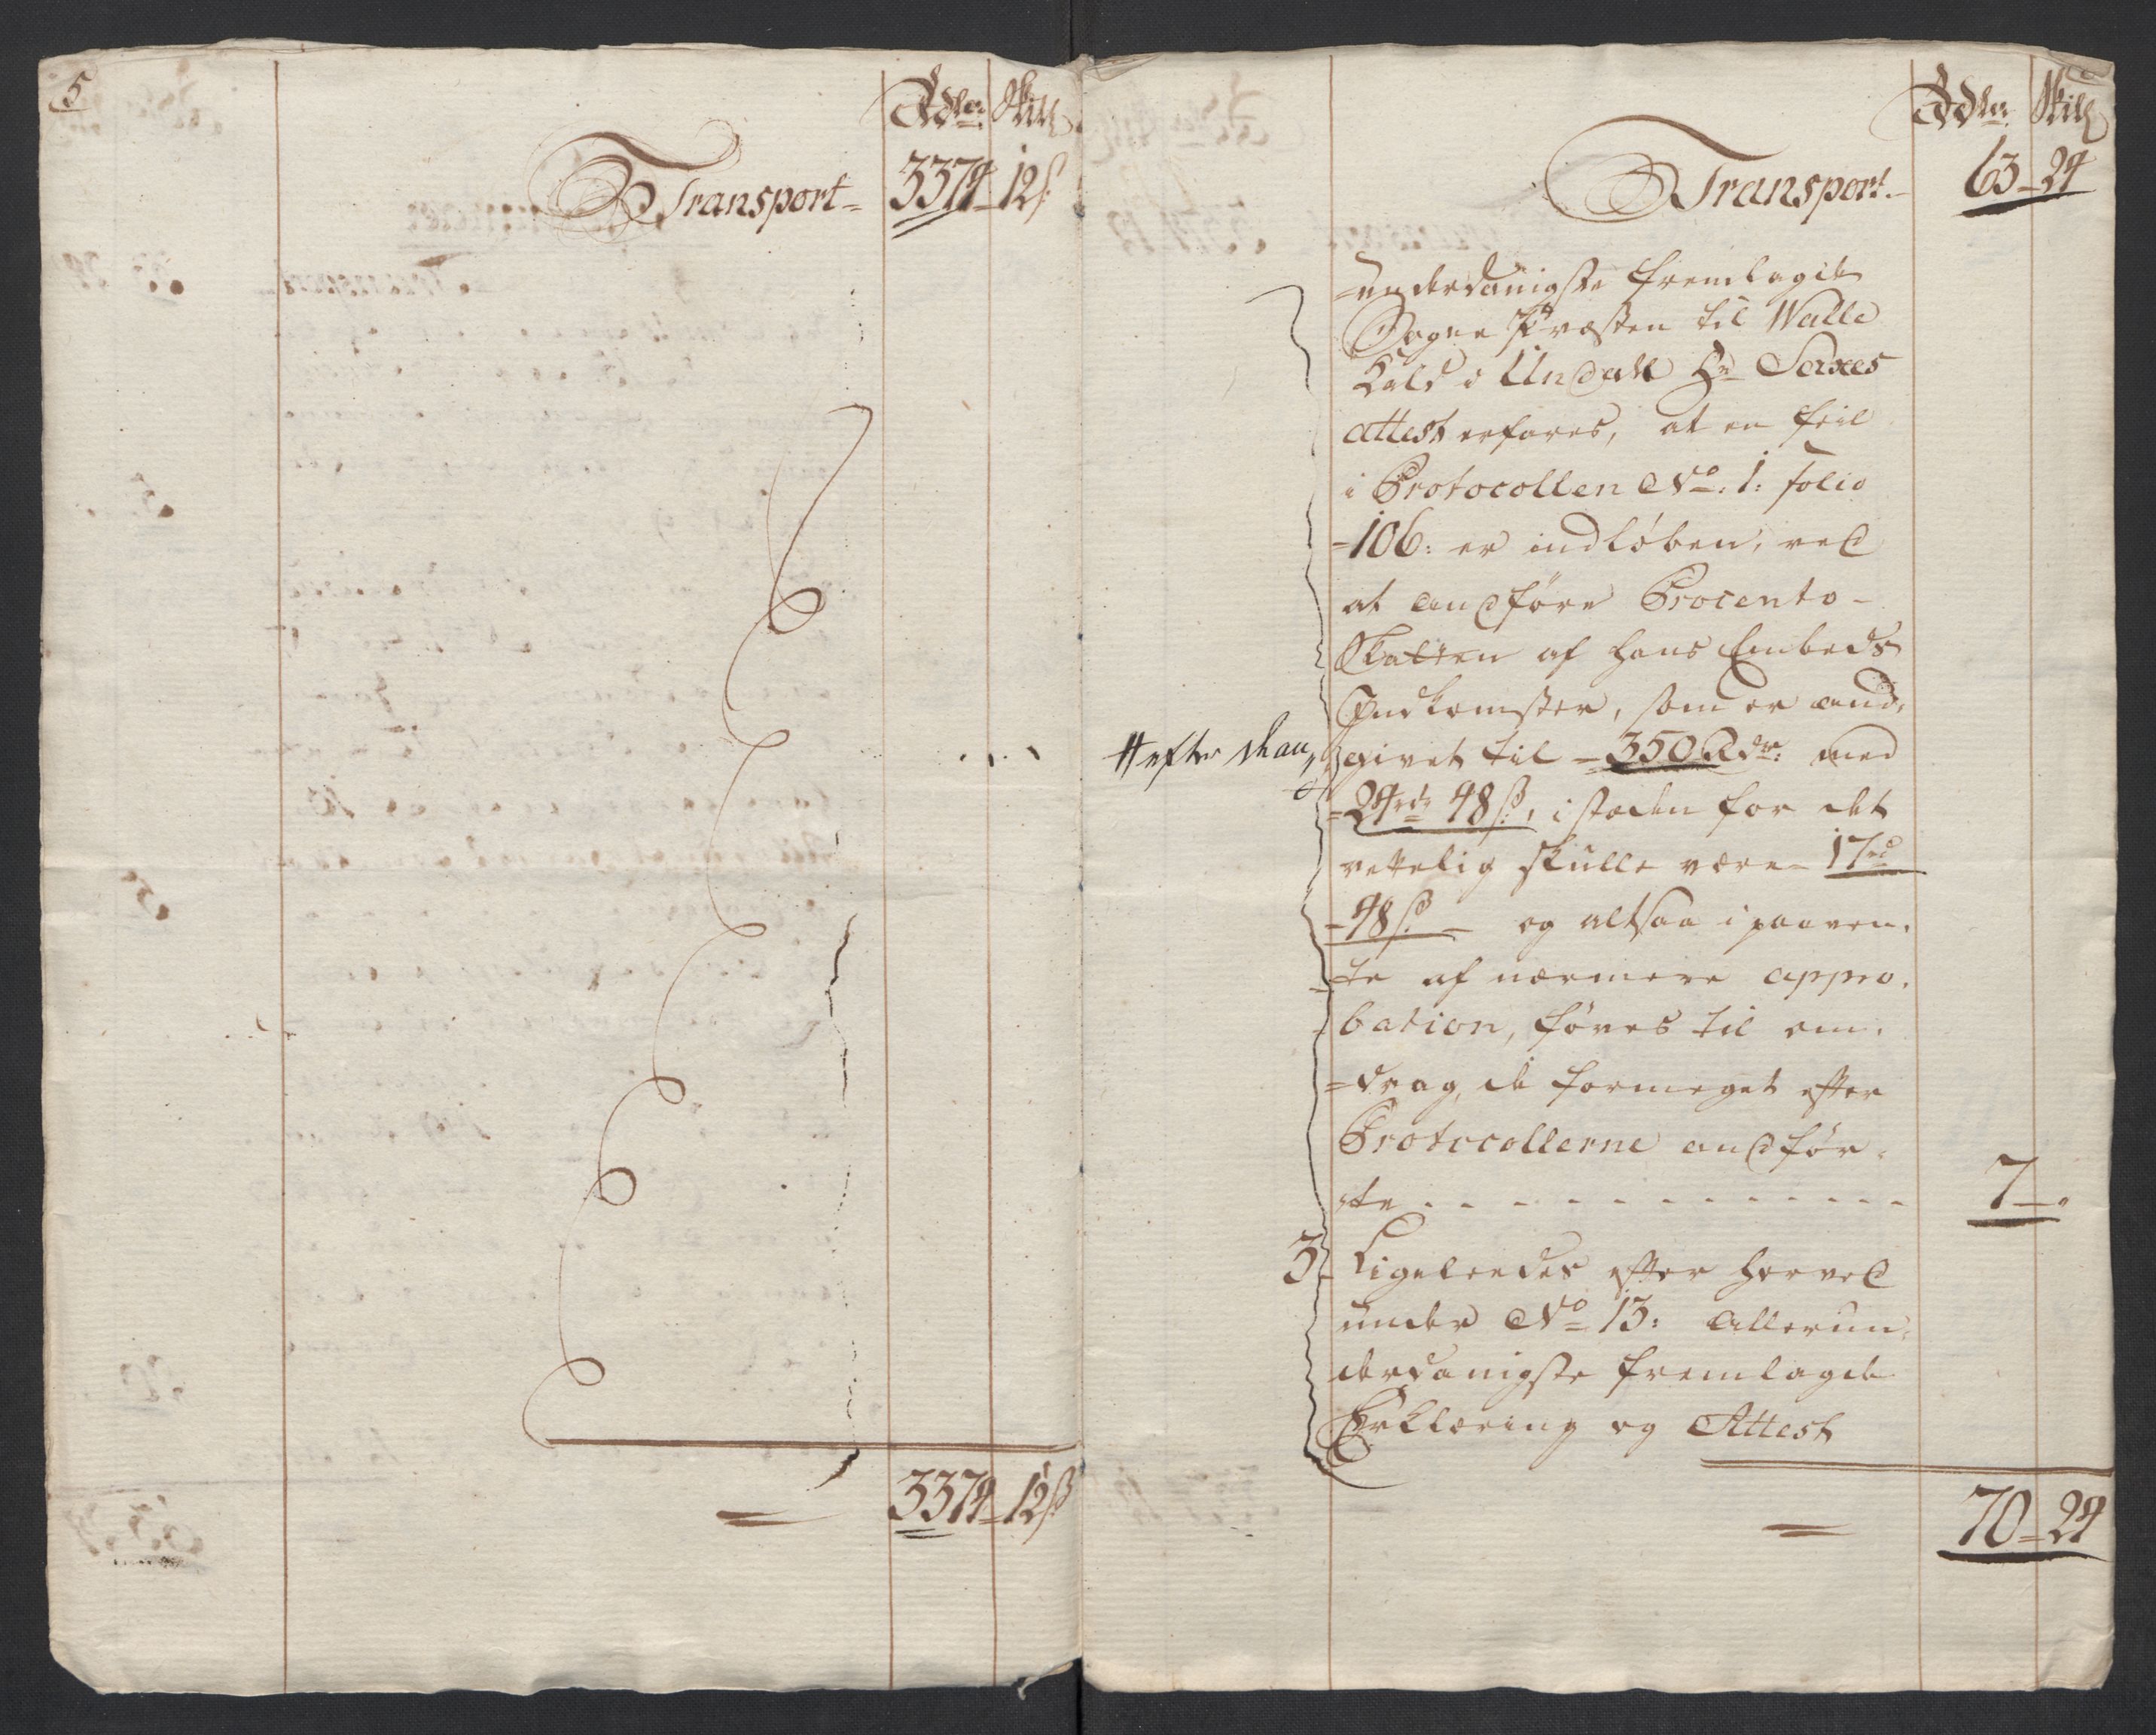 5
Rdlr: Skill
Transport 3374 12 s.
3374 12 s.
Rdlr: Skill
Transport. 63 24
underdanigste fremlagde
Sogne Præsten til Walle
Kald i Undahl Hr Serxes
attest erfares, at en feil
i Protocollen No: 1: folio
106: er indløben, ved
at andføre Procento-
Skatten af hans Embeds
Indkomster, som er and-
givet til 350 Rdr: med
24rd 48 s:, i stæden for det
rettelig skulle være 17rd
48 s. og altsaa i paaven-
te af nærmere appro-
bation, føres til em-
drag, de formeget efter
Protocollerne andfør-
te 7
3 Ligeleedes efter herved
under No 13: allerun-
derdanigste fremlagde
Erklæring og Attest
70 24
# efter